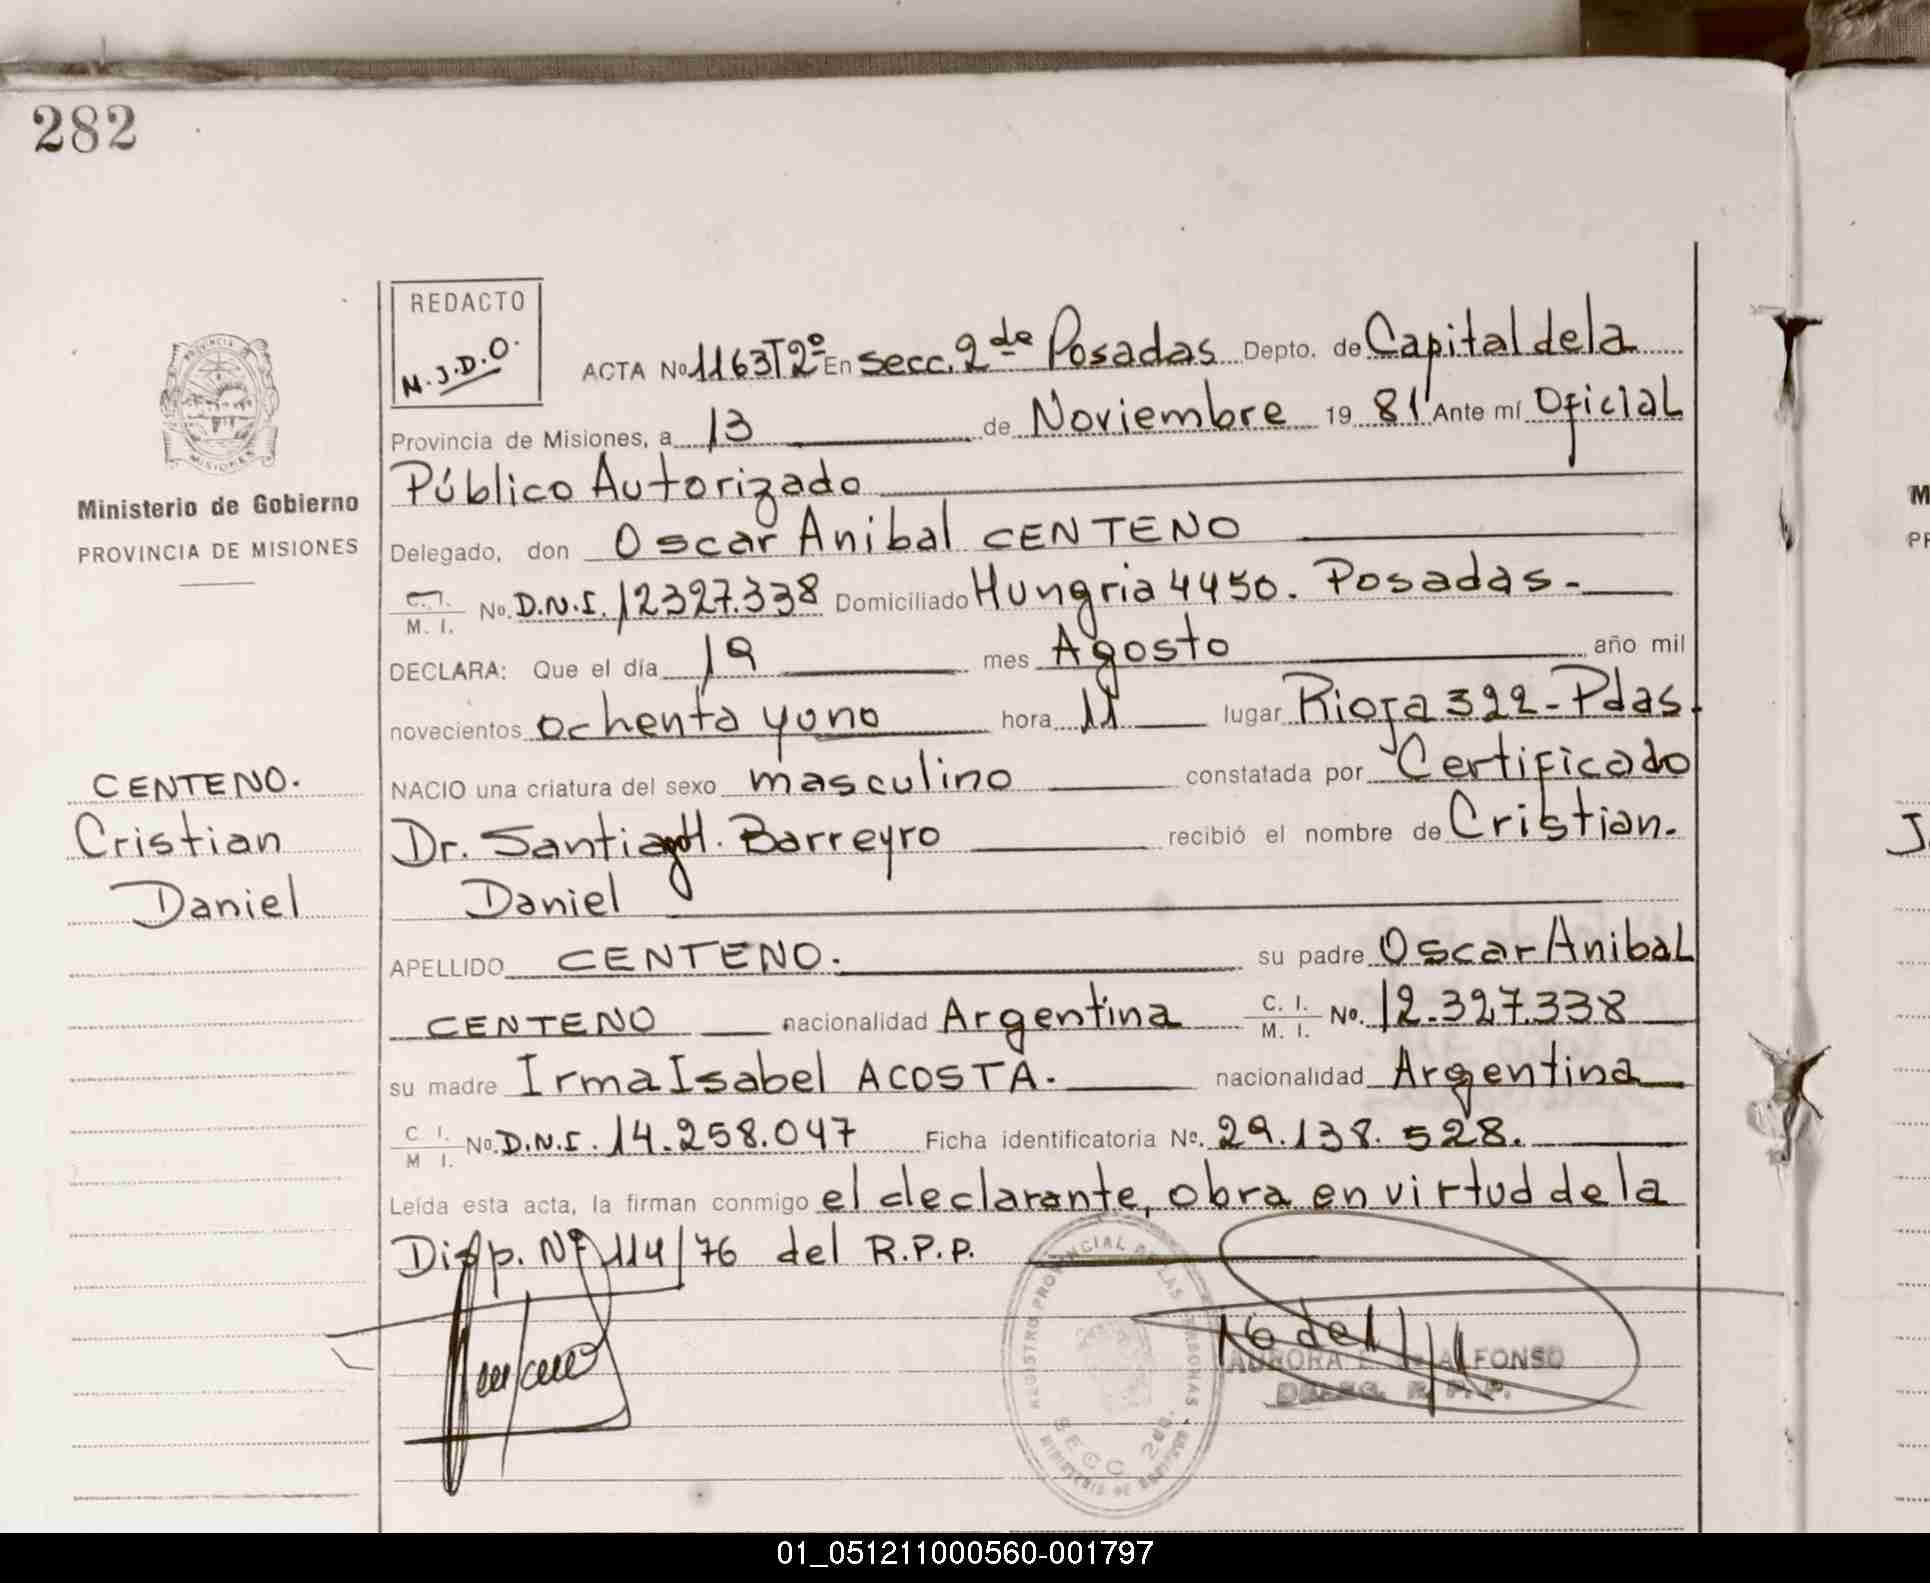 282
REDACTO
N.J.D.O.
PROVINCIA DE
MISIONES
Ministerio de Gobierno
PROVINCIA DE MISIONES
CENTENO.
Cristian
Daniel
ACTA No 1163T2º En secc. 2da Posadas Depto. de Capital de la
Provincia de Misiones, a 13 de Noviembre 19 81 Ante mí Oficial
Público Autorizado
Delegado, don Oscar Anibal CENTENO
C. I. / M. I. No. D.N.I. 12327.338 Domiciliado Hungria 4450. Posadas-
DECLARA: Que el día 19 mes Agosto año mil
novecientos ochenta y uno hora 11 lugar Rioja 322-Pdas.
NACIO una criatura del sexo masculino constatada por Certificado
Dr. Santiago H. Barreyro recibió el nombre de Cristian.
Daniel
APELLIDO CENTENO. su padre Oscar Anibal
CENTENO nacionalidad Argentina C. I. / M. I. No. 12.327.338
su madre Irma Isabel ACOSTA. nacionalidad Argentina
C I. / M I. No. D.N.I. 14.258.047 Ficha identificatoria No. 29.138.528.
Leída esta acta, la firman conmigo el declarante, obra en virtud de la
Disp. Nº 114/76 del R.P.P.
REGISTRO PROVINCIAL DE LAS PERSONAS
SECC. 2da.
MINISTERIO DE GOBIERNO
AURORA ALFONSO
DELEG. R. P. P.
M
PR
J
01_051211000560-001797